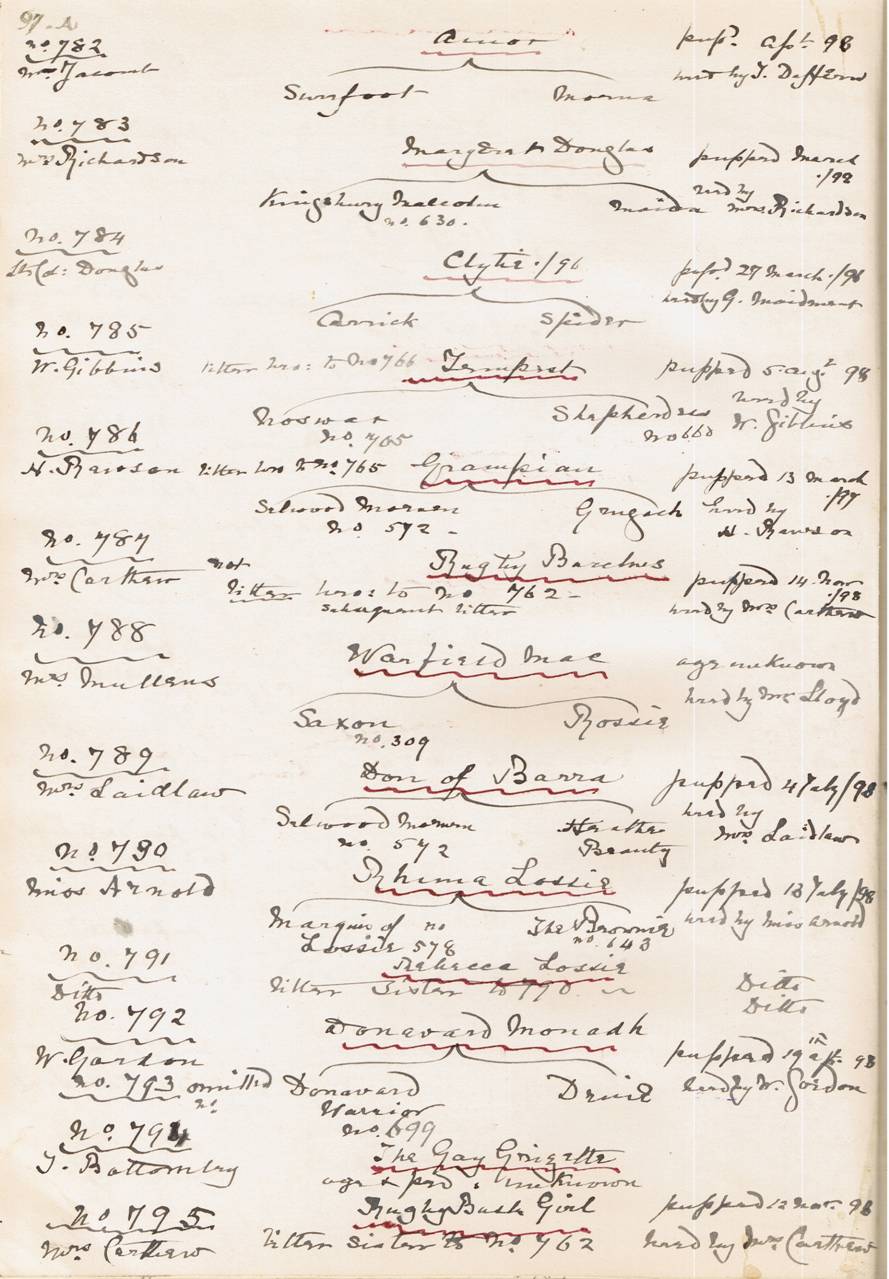 97. A
no. 782 Amor pupd. Apl. 98
Mrs Jacomb bred by T. Dafferd
Swiftfoot Morna
no. 783
Mrs Richardson Margaret Douglas pupped March ./92
Kingsbury Malcolm Maida bred by Mrs Richardson
no. 630.
no. 784 Clytie ./96 pupd 27 March ./96
Douglas bred by G. Maidment
Carrick Spider
no. 785
W. Gibbins litter bro: to No 766 Tempest pupped 5. Augt 98
Noswar Shepherdess bred by
no. 705 no 660 W. Gibbins
no. 786
H. Rawson litter bro to no 765 Grampian pupped 13 March ./97
Selwood Morven Grugach bred by
no. 572 - H. Rawson
no. 787 Rugby Barclnes
Mrs Carthew not pupped 14. Nov ./98
litter bro: to no 762 -
subsequent litter bred by Mrs Carthew
no. 788
Warfield Mac age unknown
Mrs Mullens bred by Mr Lloyd
Saxon Rossie
no. 309
no. 789
Mrs Laidlaw Don of Barra pupped 4 July/98
Selwood Morven Heather bred by
no. 572 Beauty Mrs Laidlaw
no. 790
Miss Arnold Rhema Lossie pupped 13 July/98
Marquis of no The Brownie bred by Miss Arnold
Lossie 578 no. 643
no. 791 Rebecca Lossie
Ditto litter sister to 790. Ditto
no. 792 Ditto
Donavard Monadh
W. Gordon pupped 19th Apl. 98
no. 793 omitted Donavard Druie bred by W. Gordon
no. Warrior
no. 699
No. 794 The Gay Grizette
J. Bottomley age & ped: unknown
No 795 Rugby Bush Girl pupped 12 Nov. 98
Mrs Carthew litter sister to No. 762 bred by Mrs Carthew